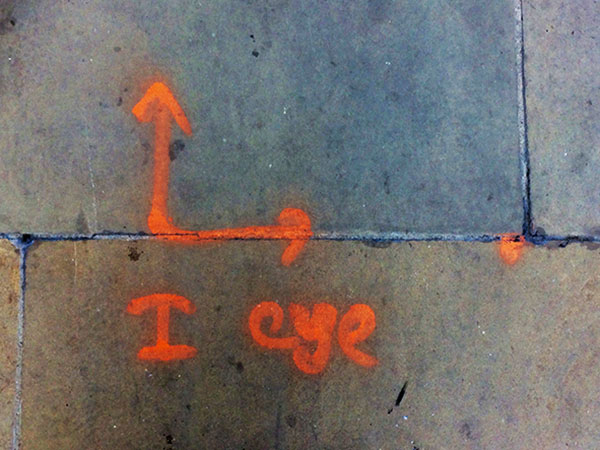 I eye